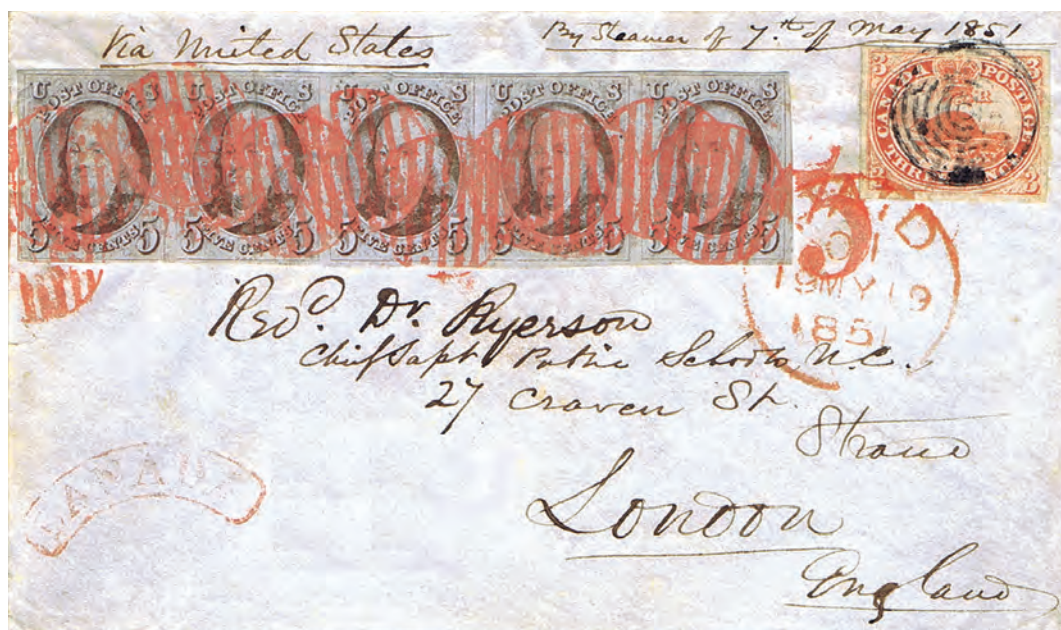 Via United States
By Steamer of 7th of May 1851
U S
POST OFFICE
5 FIVE CENTS 5
U S
POST OFFICE
5 FIVE CENTS 5
U S
POST OFFICE
5 FIVE CENTS 5
U S
POST OFFICE
5 FIVE CENTS 5
U S
POST OFFICE
5 FIVE CENTS 5
3 3
CANADA POSTAGE
THREE
3 3
PAID
3
19MY19
1851
Revd. Dr. Ryerson
Chief Supt Public Schools U.C.
27 Craven St.
Strand
London
England
CANADA